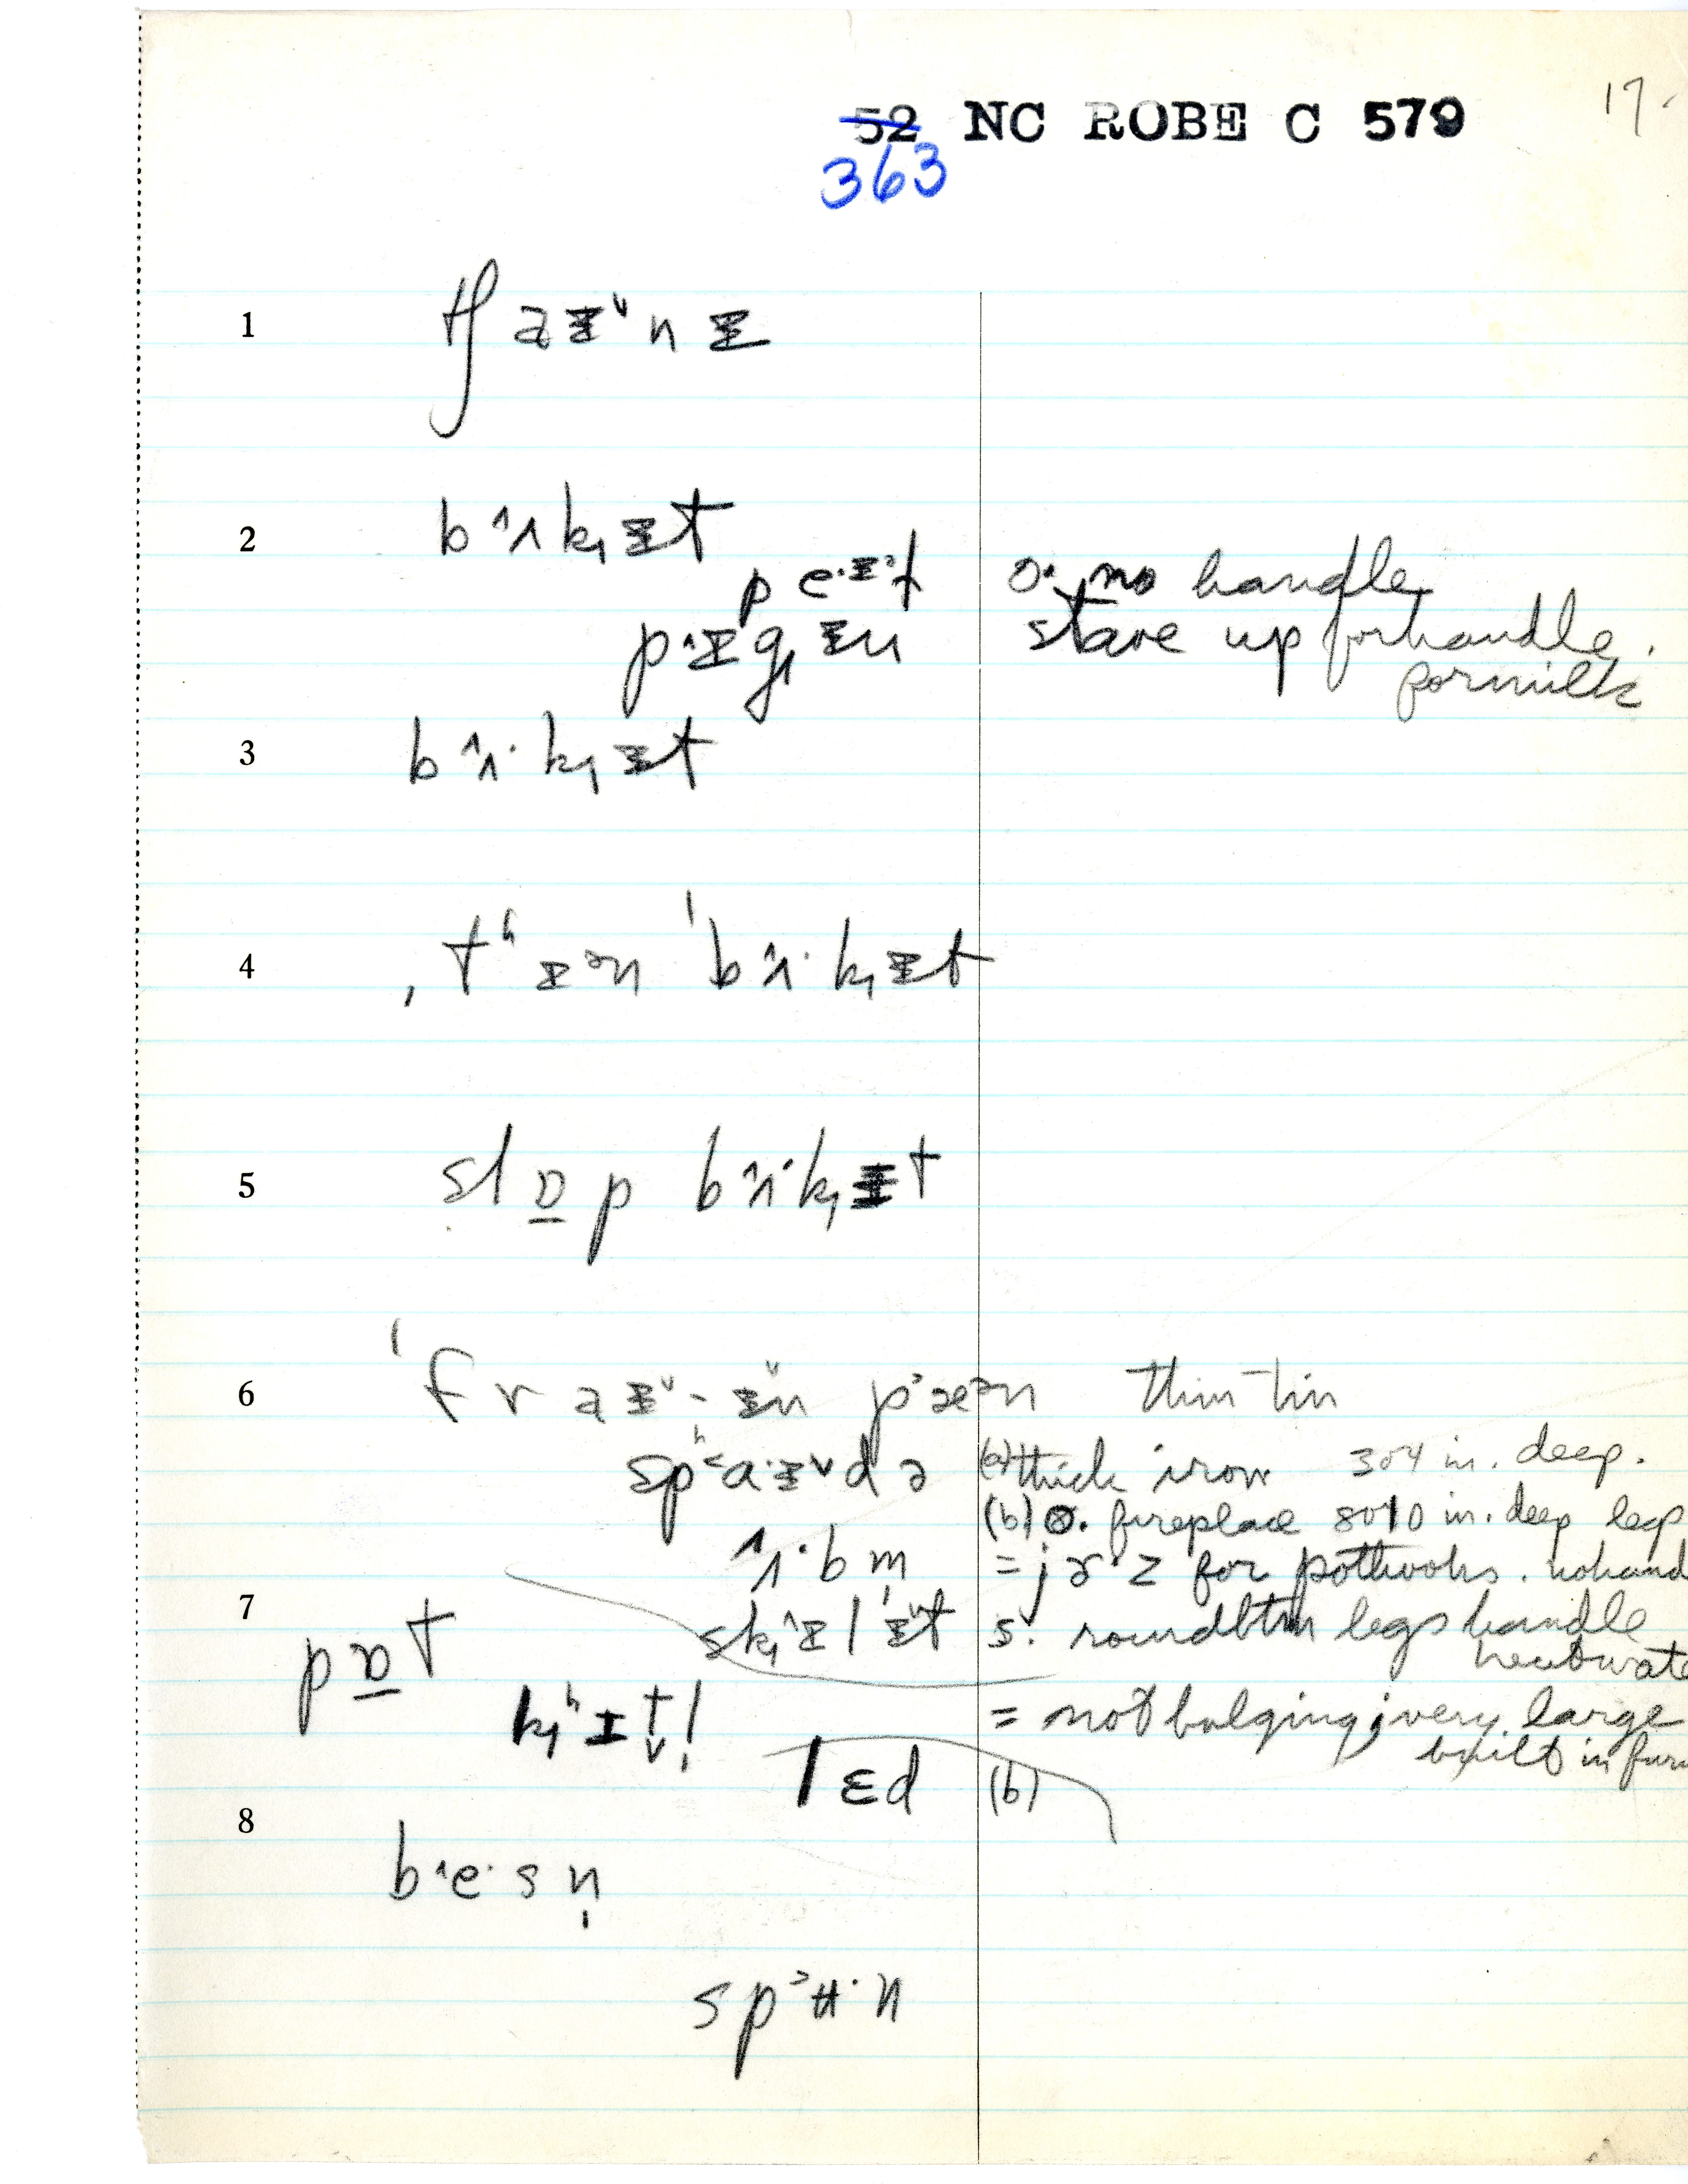 52 NC ROBE C 579 17.
363
1 tʃaɪ˅nɪ
2 b^ʌkɪt
pe·ɪˀt o. no handle
p^ɪgɪn stave up for handle.
for milk
3 b^ʌ·kɪt
4 ˌtʰɪən ˈb^ʌ·kɪt
5 slɒ̲p b^ʌ·kɪt
6 ˈfraɪ˅-ɪn pˀæən thin tin
spʰ˂a·ɪ˅də (a) thick iron 3 or 4 in. deep.
(b) o. fireplace 8 or 10 in. deep legs
^ʌ·bm̩ = jɚ·z for pothooks. no hand
7 sk^ɪlɪ˅t s. round btm legs handle
pɒ̲t heat wate
kʰɪt̬l̩ = not bulging; very large
built in furn
lɛd (b)
8 b^e·sn̩
sp˃ʉ·n